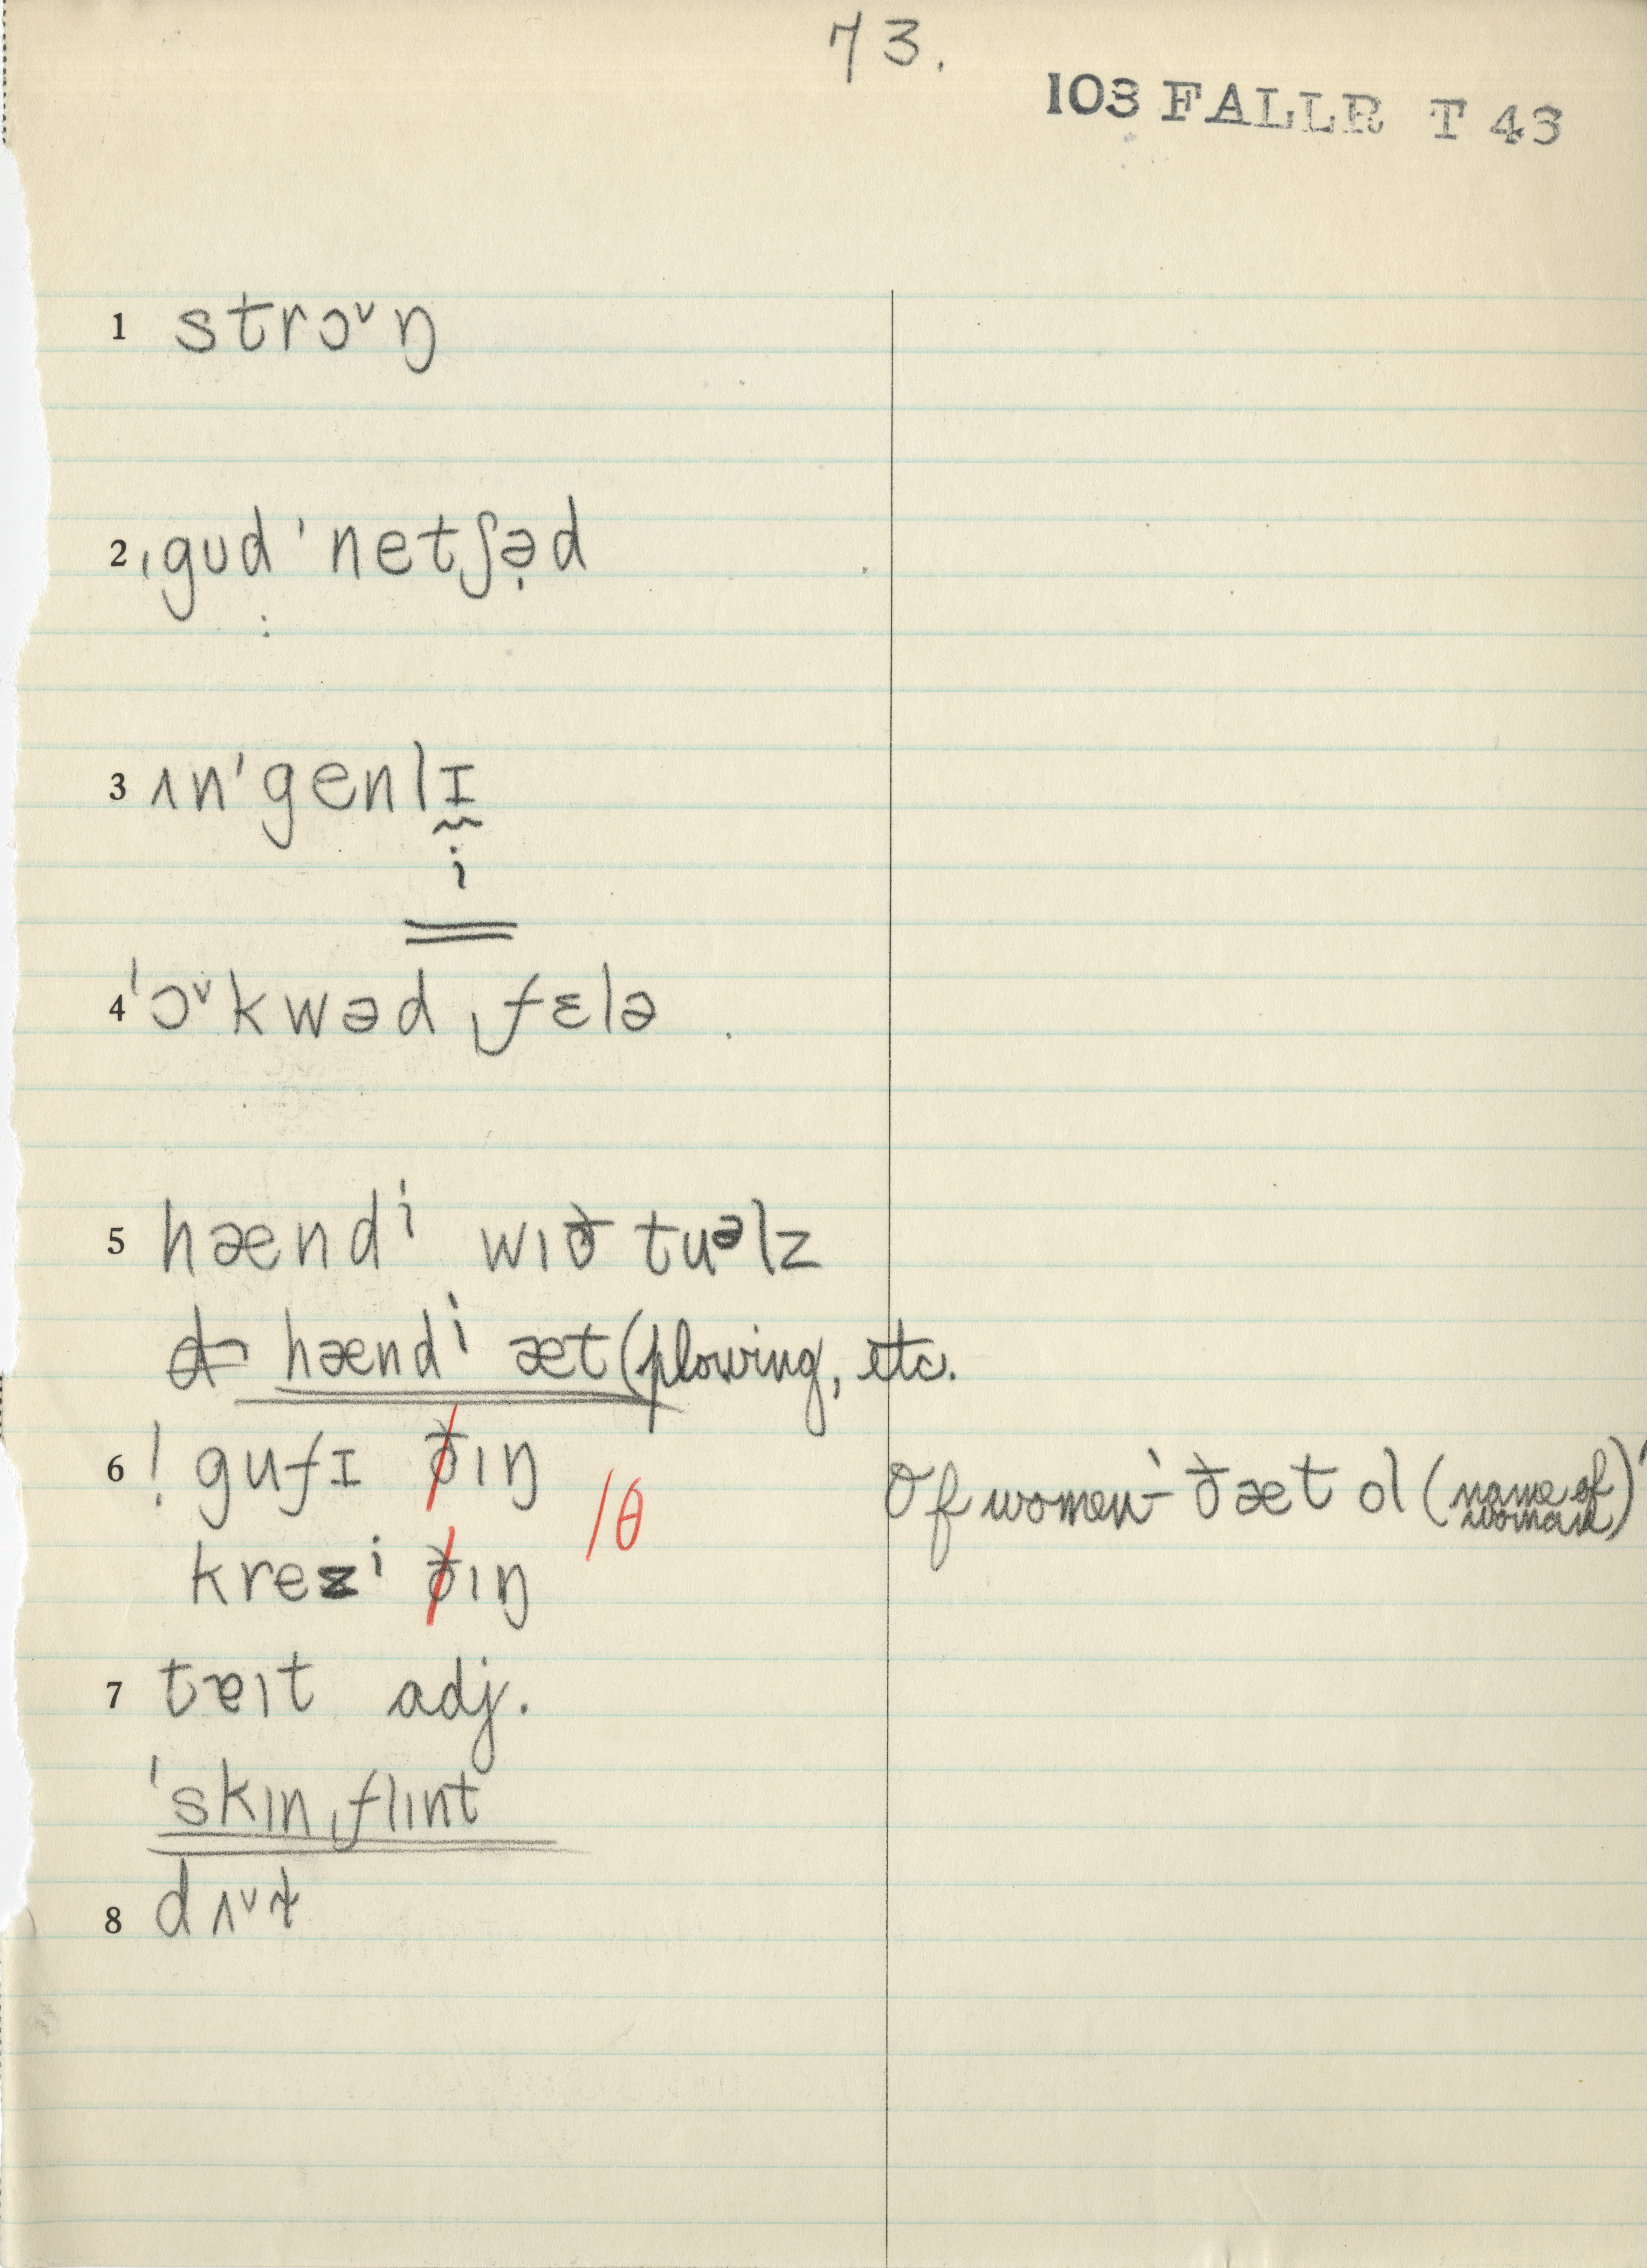 73.
103 FALLR T 43
1 strɔᵛŋ
2 ˌgud ˈnetʃə̣d
3 ɪnˈgenlɪ
i
4 ˈɔᵛkwəd ˌfɛlə
5 hændⁱ wɪð tuᵊlz
hændⁱ æt (plowing, etc.
6 ! gufɪ ðɪŋ
/θ
Of women – 'ðæt ol (name of woman)'
krezⁱ ðɪŋ
7 tɐɪt adj.
ˈskɪnˌflɪnt
8 dʌᵛt